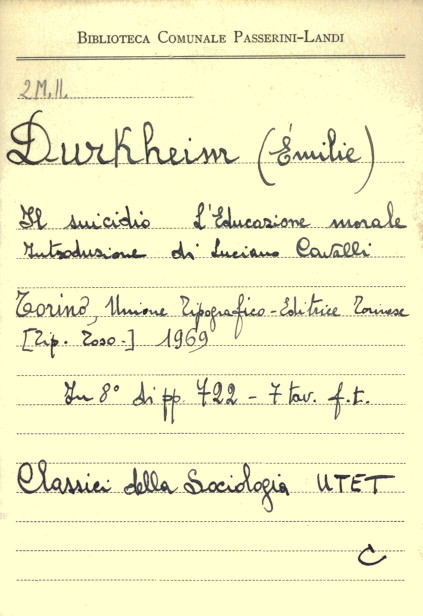 BIBLIOTECA COMUNALE PASSERINI-LANDI
2 M. II.
Durkheim (Émilie)
Il suicidio L'Educazione morale
Introduzione di Luciano Cavalli
Torino, Unione Tipografico-Editrice Torinese
[Tip. Toso.] 1969
In 8° di pp. 722 - 7 tav. f.t.
Classici della Sociologia UTET
C